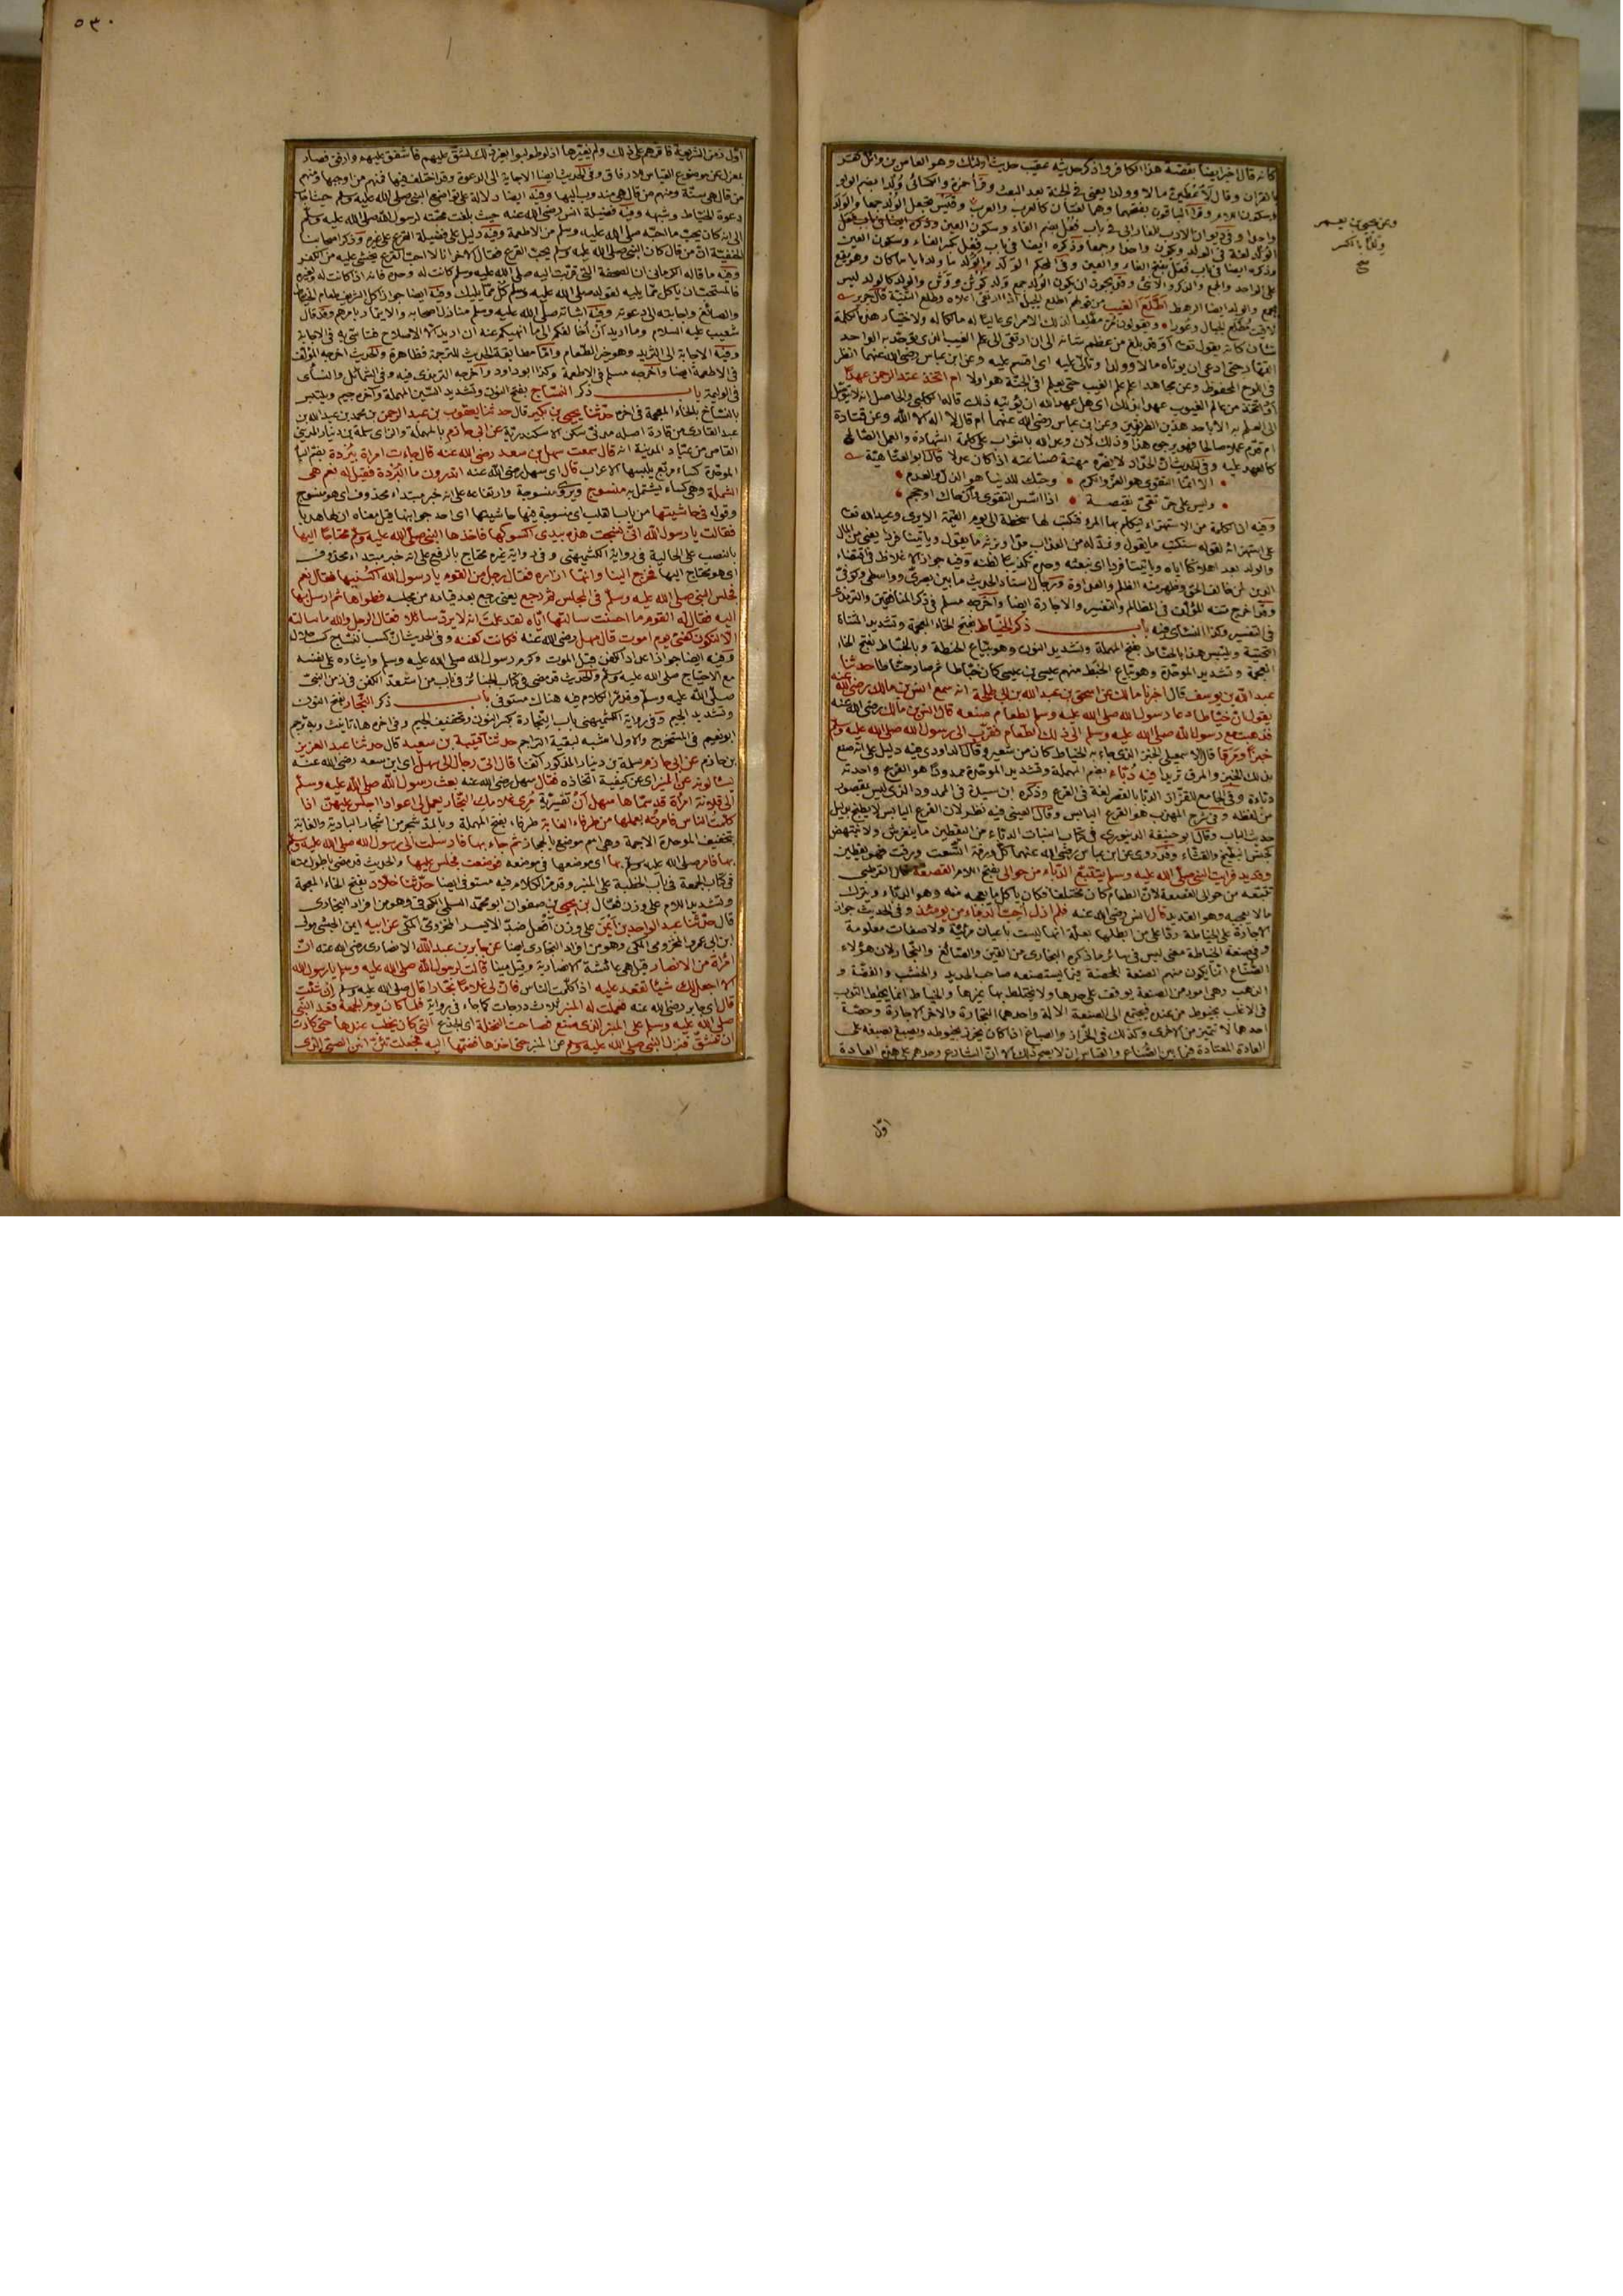 كانه قال اخبر ايضا بقصة هذا الكافر واذكر حديثه عقيب حديث اولئك وهو العاص بن وائل
بالقرآن وقال لأوتين مالا وولدا يعني في الجنة بعد البعث وقرأ حمزة والكسائي وُلدا بضم الواو
وسكون اللام وقرأ الباقون بفتحهما وهما لغتان كالعرب والعرب وقيس تجعل الولد جمعا والولد
واحدا وفي ديوان الادب للفارابي في باب فعل بضم الفاء وسكون العين
الولد لغة في الولد ويكون واحدا وجمعا وذكره ايضا في باب فعل بكسر الفاء وسكون العين
وذكره ايضا في باب فعل بفتح الفاء والعين وفي المحكم الولد والولد ما ولد ايا ما كان وهو يقع
على الواحد والجمع والذكر والانثى وقد يجوز ان يكون الولد جمع ولد كوثن ووثن والولد كالولد ليس
بجمع والولد ايضا الرهط اطلع الغيب من قولهم اطلع الجبل اذا ارتقى اعلاه وطلع الثنية قال جرير
لاقيت مطلع الجبال وعورا ويقولون مر مطلعا لذلك الامر اي عاليا له مالكا له ولاختيار هذه الكلمة
شان كانه يقول تعالى أو قد بلغ من عظم شانه الى ان ارتقى الى علم الغيب الذي توحد به الواحد
القهار حتى ادعى ان يؤتاه مالا وولدا وتالى عليه اي اقسم عليه وعن ابن عباس رضي الله عنهما انظر
في اللوح المحفوظ وعن مجاهد اعلم علم الغيب حتى يعلم افي الجنة هو اولا ام اتخذ عند الرحمن عهدا
أو اتخذ من عالم الغيوب عهدا بذلك اي هل عهد الله ان يؤتيه ذلك قاله الكلبي والحاصل انه لا يتوصل
الى العلم به الا باحد هذين الطريقين وعن ابن عباس رضي الله عنهما ام قال لا اله الا الله وعن قتادة
ام قدم عملا صالحا فهو يرجوه هذا وذلك لان وعد الله بالثواب على كلمة الشهادة والعمل الصالح
كالعهد عليه وفي الحديث ان الحداد لا يضره مهنة صناعته اذا كان عدلا قال ابو العتاهية
الا انما التقوى هو العز والكرم وحبك للدنيا هو الذل والعدم
وليس على حر تقي نقيصة اذا اسس التقوى وان حاك او حجم
وفيه ان الكلمة من الاستهزاء يتكلم بها المرء فيكتب لها سخطة الى يوم القيمة الا يرى وعيد الله تعالى
على استهزائه لقوله سنكتب ما يقول ونمد له من العذاب مدا ونرثه ما يقول وياتينا فردا يعني من المال
والولد بعد اهلاكنا اياه وياتينا فردا اي نبعثه وحده تكذيبا لظنه وفيه جواز الاغلاظ في اقتضاء
الدين لمن خالف الحق وظهر منه الظلم والعداوة ورجال اسناد الحديث ما بين بصري وواسطي وكوفي
وقد اخرج متنه المؤلف في المظالم والتفسير والاجارة ايضا واخرجه مسلم في ذكر المنافقين والترمذي
في التفسير وكذا النسائي فيه باب ذكر الخياط بفتح الخاء المعجمة وتشديد المثناة
التحتية ويلتبس هذا بالحناط بفتح المهملة وتشديد النون وهو بياع الحنطة وبالخباط بفتح الخاء
المعجمة وتشديد الموحدة وهو بياع الخبط منهم عيسى بن ابي عيسى كان خياطا ثم صار حناطا حدثنا
عبد الله بن يوسف قال اخبرنا مالك عن اسحق بن عبد الله بن ابي طلحة انه سمع انس بن مالك رضي الله عنه
يقول ان خياطا دعا رسول الله صلى الله عليه وسلم لطعام صنعه قال انس بن مالك رضي الله عنه
فذهبت مع رسول الله صلى الله عليه وسلم الى ذلك الطعام فقرب الى رسول الله صلى الله عليه وسلم
خبزا ومرقا قال الاسمعيلي الخبز الذي جاء به الخياط كان من شعير وقال الداودي فيه دليل على انه صنع
بذلك الخبز والمرق ثريدا فيه دباء بضم المهملة وتشديد الموحدة ممدودا هو القرع واحدته
دباءة وفي الجامع للقزاز الدبا بالقصر لغة في القرع وذكره ابن سيدة في الممدود الذي ليس بمقصور
من لفظه وفي شرح المهذب هو القرع اليابس وقال العيني فيه نظر لان القرع اليابس لا يطبخ بدليل
حديث الباب وقال ابو حنيفة الدينوري في كتاب النبات الدباء من اليقطين ما ينفرش ولا ينهض
كجنس البطيخ والقثاء وقد روي عن ابن عباس رضي الله عنهما كل ورقة اتسعت ورقت فهو يقطين
وقديد فرايت النبي صلى الله عليه وسلم يتتبع الدباء من حوالى بفتح اللام القصعة قال القرطبي
تتبعه من حوالى القصعة لان الطعام كان مختلطا فكان ياكل ما يعجبه منه وهو الدباء ويترك
ما لا يعجبه وهو القديد قال انس رضي الله عنه فلم ازل احب الدباء من يومئذ وفي الحديث جواز
الاجارة على الخياطة ردا على من ابطلها بعلة انها ليست باعيان مرئية ولا صفات معلومة
وفي صنعة الخياطة معنى ليس في سائر ما ذكره البخاري من القين والصائغ والنجار لان هؤلاء
الصناع انما يكون منهم الصنعة المحضة فيما يستصنعه صاحب الحديد والخشب والفضة و
الذهب وهي امور من الصنعة يوقف على حدها ولا يختلط بها غيرها والخياط انما يخيط الثوب
في الاغلب بخيوط من عنده فيجتمع الى الصنعة الالة واحدهما التجارة والاخر الاجارة وحصة
احدهما لا تتميز من الاخرى وكذلك في الخراز والصباغ اذا كان يخرز بخيوطه ويصبغ بصبغه على
العادة المعتادة فيما بين الصناع والقياس ان لا يصح ذلك الا ان الشارع وجدهم على هذه العادة
وعن يحيى بن يعمر
وِلْدًا بالكسر
صح
اوّل
٥٣٠
اول زمن الشريعة فاقرهم على ذلك ولم يغيرها اذ لو طولبوا بغير ذلك لشق عليهم فاشفق عليهم وارفق فصار
بمعزل عن موضوع القياس للارفاق وفي الحديث ايضا الاجابة الى الدعوة وقد اختلف فيها فمنهم من اوجبها ومنهم
من قال هي سنة ومنهم من قال هي مندوب اليها وفيه ايضا دلالة على تواضع النبي صلى الله عليه وسلم حيث اجاب
دعوة الخياط وشبهه وفيه فضيلة انس رضي الله عنه حيث بلغت محبته لرسول الله صلى الله عليه وسلم
الى انه كان يحب ما احبه صلى الله عليه وسلم من الاطعمة وفيه دليل على فضيلة القرع على غيره وذكر اصحابنا
الحنفية ان من قال كان النبي صلى الله عليه وسلم يحب القرع فقال الاخر انا لا احب القرع يخشى عليه من الكفر
وفيه ما قاله الكرماني ان الصحفة التي قربت اليه صلى الله عليه وسلم كانت له وحده فانه اذا كانت له ولغيره
فالمستحب ان ياكل مما يليه لقوله صلى الله عليه وسلم كل مما يليك وفيه ايضا جواز اكل الشريف طعام الخياط
والصائغ واجابته الى دعوته وفيه اتيانه صلى الله عليه وسلم منازل اصحابه والايتمار بامرهم وقد قال
شعيب عليه السلام وما اريد ان أخالفكم الى ما انهيكم عنه ان اريد الا الاصلاح فتاسى به في الاجابة
وفيه الاجابة الى الثريد وهو خير الطعام واما مطابقة الحديث للترجمة فظاهرة والحديث اخرجه المؤلف
في الاطعمة ايضا واخرجه مسلم في الاطعمة وكذا ابو داود واخرجه الترمذي فيه وفي الشمائل والنسائي
في الوليمة باب ذكر النساج بفتح النون وتشديد السين المهملة وآخره جيم ويلتبس
بالنساخ بالخاء المعجمة في اخره حدثنا يحيى بن بكير قال حدثنا يعقوب بن عبد الرحمن بن محمد بن عبد الله بن
عبد القاري من قارة اصله مدني سكن الاسكندرية عن ابي حازم بالمهملة والزاي سلمة بن دينار المدني
القاص من عباد المدينة انه قال سمعت سهل بن سعد رضي الله عنه قال جاءت امراة ببردة بضم الباء
الموحدة كساء مربع يلبسها الاعراب قال اي سهل رضي الله عنه اتدرون ما البردة فقيل له نعم هي
الشملة وهي كساء يشتمل به منسوج ويروى منسوجة وارتفاعه على انه خبر مبتداء محذوف اي هو منسوج
وقوله في حاشيتها من باب القلب اي منسوجة فيها حاشيتها اي احد جوانبها وقيل معناه ان لها هدبا
فقالت يا رسول الله اني نسجت هذه بيدي اكسوكها فاخذها النبي صلى الله عليه وسلم محتاجا اليها
بالنصب على الحالية في رواية الكشميهني وفي رواية غيره محتاج بالرفع على انه خبر مبتداء محذوف
اي هو محتاج اليها فخرج الينا وانها ازاره فقال رجل من القوم يا رسول الله اكسنيها فقال نعم
فجلس النبي صلى الله عليه وسلم في المجلس ثم رجع يعني رجع بعد قيامه من مجلسه فطواها ثم ارسل بها
اليه فقال له القوم ما احسنت سالتها اياه لقد علمت انه لا يرد سائلا فقال الرجل والله ما سالته
الا لتكون كفني يوم اموت قال سهل رضي الله عنه فكانت كفنه وفي الحديث ان كسب النساج كسب حلال
وفيه ايضا جواز اعداد الكفن قبل الموت وكرم رسول الله صلى الله عليه وسلم وايثاره على نفسه
مع الاحتياج صلى الله عليه وسلم والحديث قد مضى في كتاب الجنائز في باب من استعد الكفن في زمن النبي
صلى الله عليه وسلم وقد مر الكلام فيه هناك مستوفى باب ذكر النجار بفتح النون
وتشديد الجيم وفي رواية الكشميهني باب النجارة بكسر النون وتخفيف الجيم وفي اخره هاء تانيث وبه ترجم
ابو نعيم في المستخرج والاول اشبه لبقية التراجم حدثنا قتيبة بن سعيد قال حدثنا عبد العزيز
بن حازم عن ابي حازم سلمة بن دينار المذكور آنفا قال اتى رجال الى سهل اي ابن سعد رضي الله عنه
يسئلونه عن المنبر اي عن كيفية اتخاذه فقال سهل رضي الله عنه بعث رسول الله صلى الله عليه وسلم
الى فلانة امرأة قد سماها سهل ان تفسيرية مري غلامك النجار يعمل لي اعوادا اجلس عليهن اذا
كلمت الناس فامرته بعملها من طرفاء الغابة طرفاء بفتح المهملة وبالمد شجر من اشجار البادية والغابة
بتخفيف الموحدة الاجمة وهي اسم موضع بالحجاز ثم جاء بها فارسلت الى رسول الله صلى الله عليه وسلم
بها فامر صلى الله عليه وسلم بها اي موضعها في موضعه فوضعت فجلس عليها والحديث قد مضى باطول منه
في كتاب الجمعة في باب الخطبة على المنبر وقد مر الكلام فيه مستوفى ايضا حدثنا خلاد بفتح الخاء المعجمة
وتشديد اللام على وزن فعال بن يحيى بن صفوان ابو محمد السلمي الكوفي وهو من افراد البخاري
قال حدثنا عبد الواحد بن أيمن على وزن أفعل ضد الايسر المخزومي المكي عن ابيه ايمن الحبشي مولى
ابن ابي عمرو المخزومي المكي وهو من افراد البخاري ايضا عن جابر بن عبد الله الانصاري رضي الله عنه ان
امرأة من الانصار قيل هي عائشة الانصارية وقيل مينا قالت لرسول الله صلى الله عليه وسلم يا رسول الله
الا اجعل لك شيئا تقعد عليه اذا كلمت الناس فان لي غلاما نجارا قال صلى الله عليه وسلم ان شئت
قال اي جابر رضي الله عنه فعملت له المنبر ثلاث درجات كما جاء في رواية فلما كان يوم الجمعة قعد النبي
صلى الله عليه وسلم على المنبر الذي صنع فصاحت النخلة اي الجذع التي كان يخطب عندها حتى كادت
ان تنشق فنزل النبي صلى الله عليه وسلم عن المنبر حتى اخذها فضمها اليه فجعلت تئن انين الصبي الذي